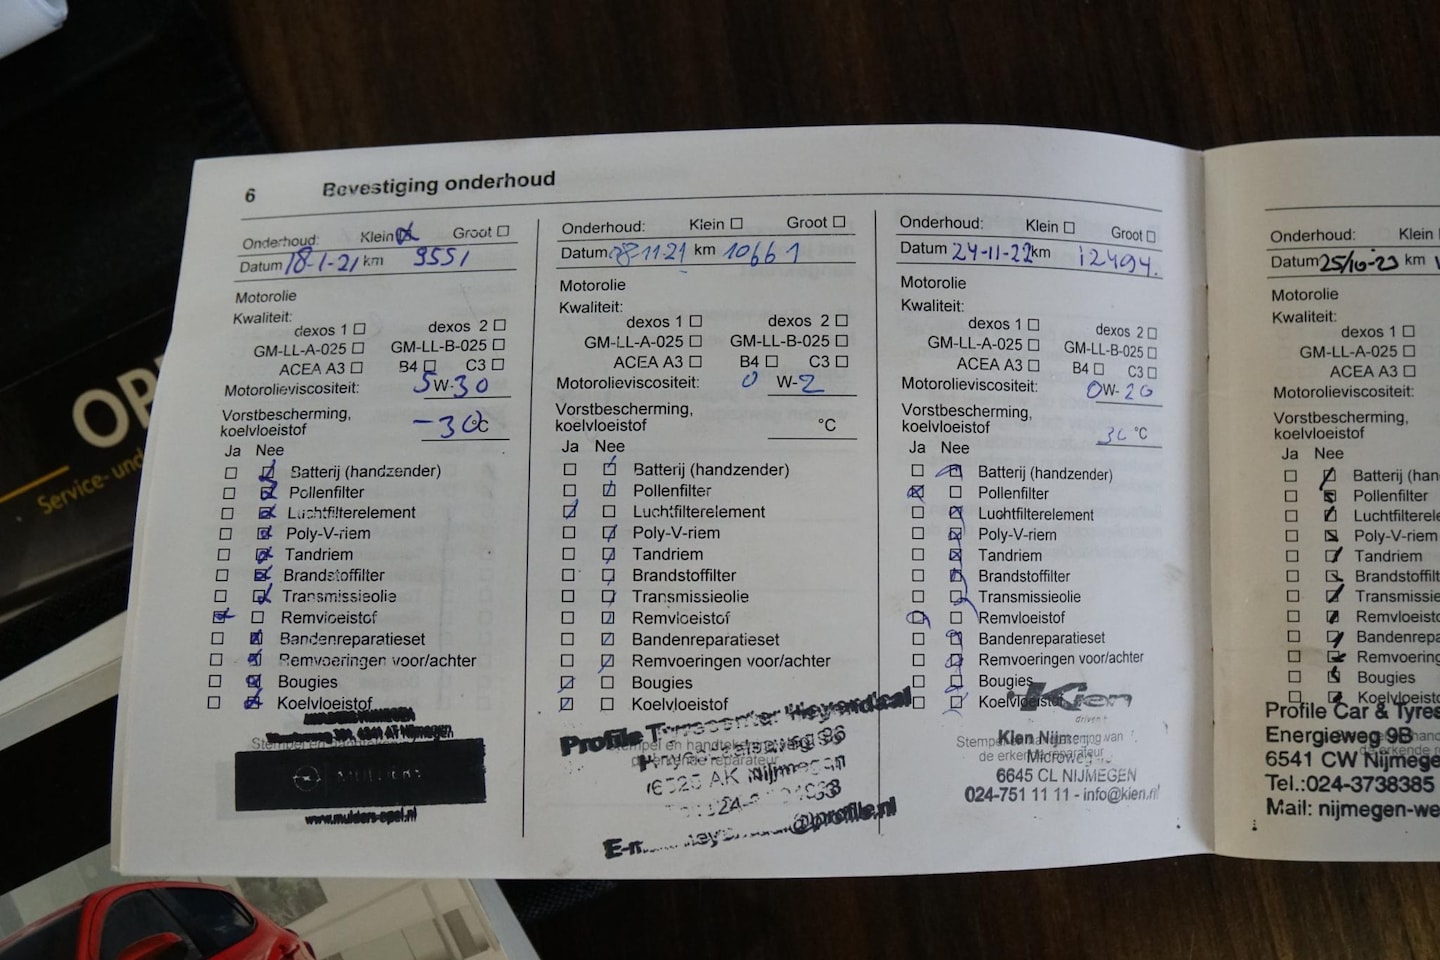 OP
Service- und
6 Bevestiging onderhoud
Onderhoud: Klein Groot
Datum 18-1-21 km 9551
Motorolie
Kwaliteit:
dexos 1 dexos 2
GM-LL-A-025 GM-LL-B-025
ACEA A3 B4 C3
Motorolieviscositeit: 5W-30
Vorstbescherming,
koelvloeistof -30°C
Ja Nee
Batterij (handzender)
Pollenfilter
Luchtfilterelement
Poly-V-riem
Tandriem
Brandstoffilter
Transmissieolie
Remvloeistof
Bandenreparatieset
Remvoeringen voor/achter
Bougies
Koelvloeistof
MULDERS
www.mulders-opel.nl
Onderhoud: Klein Groot
Datum 08-11-21 km 10661
Motorolie
Kwaliteit:
dexos 1 dexos 2
GM-LL-A-025 GM-LL-B-025
ACEA A3 B4 C3
Motorolieviscositeit: 0 W-2
Vorstbescherming,
koelvloeistof °C
Ja Nee
Batterij (handzender)
Pollenfilter
Luchtfilterelement
Poly-V-riem
Tandriem
Brandstoffilter
Transmissieolie
Remvloeistof
Bandenreparatieset
Remvoeringen voor/achter
Bougies
Koelvloeistof
Profile Tyrecenter Heyendaal
6525 AK Nijmegen
@profile.nl
Onderhoud: Klein Groot
Datum 24-11-22 km 12494.
Motorolie
Kwaliteit:
dexos 1 dexos 2
GM-LL-A-025 GM-LL-B-025
ACEA A3 B4 C3
Motorolieviscositeit: 0W-20
Vorstbescherming,
koelvloeistof 30 °C
Ja Nee
Batterij (handzender)
Pollenfilter
Luchtfilterelement
Poly-V-riem
Tandriem
Brandstoffilter
Transmissieolie
Remvloeistof
Bandenreparatieset
Remvoeringen voor/achter
Bougies
Koelvloeistof
Kien
Kien Nijmegen
Microweg
6645 CL NIJMEGEN
024-751 11 11 - info@kien.nl
Onderhoud: Klein
Datum 25/10-23 km
Motorolie
Kwaliteit:
dexos 1
GM-LL-A-025
ACEA A3
Motorolieviscositeit:
Vorstbescherming,
koelvloeistof
Ja Nee
Batterij (han
Pollenfilter
Luchtfilterele
Poly-V-riem
Tandriem
Brandstoffilt
Transmissie
Remvloeisto
Bandenrepa
Remvoering
Bougies
Koelvloeisto
Profile Car & Tyres
Energieweg 9B
6541 CW Nijmege
Tel.:024-3738385
Mail: nijmegen-we